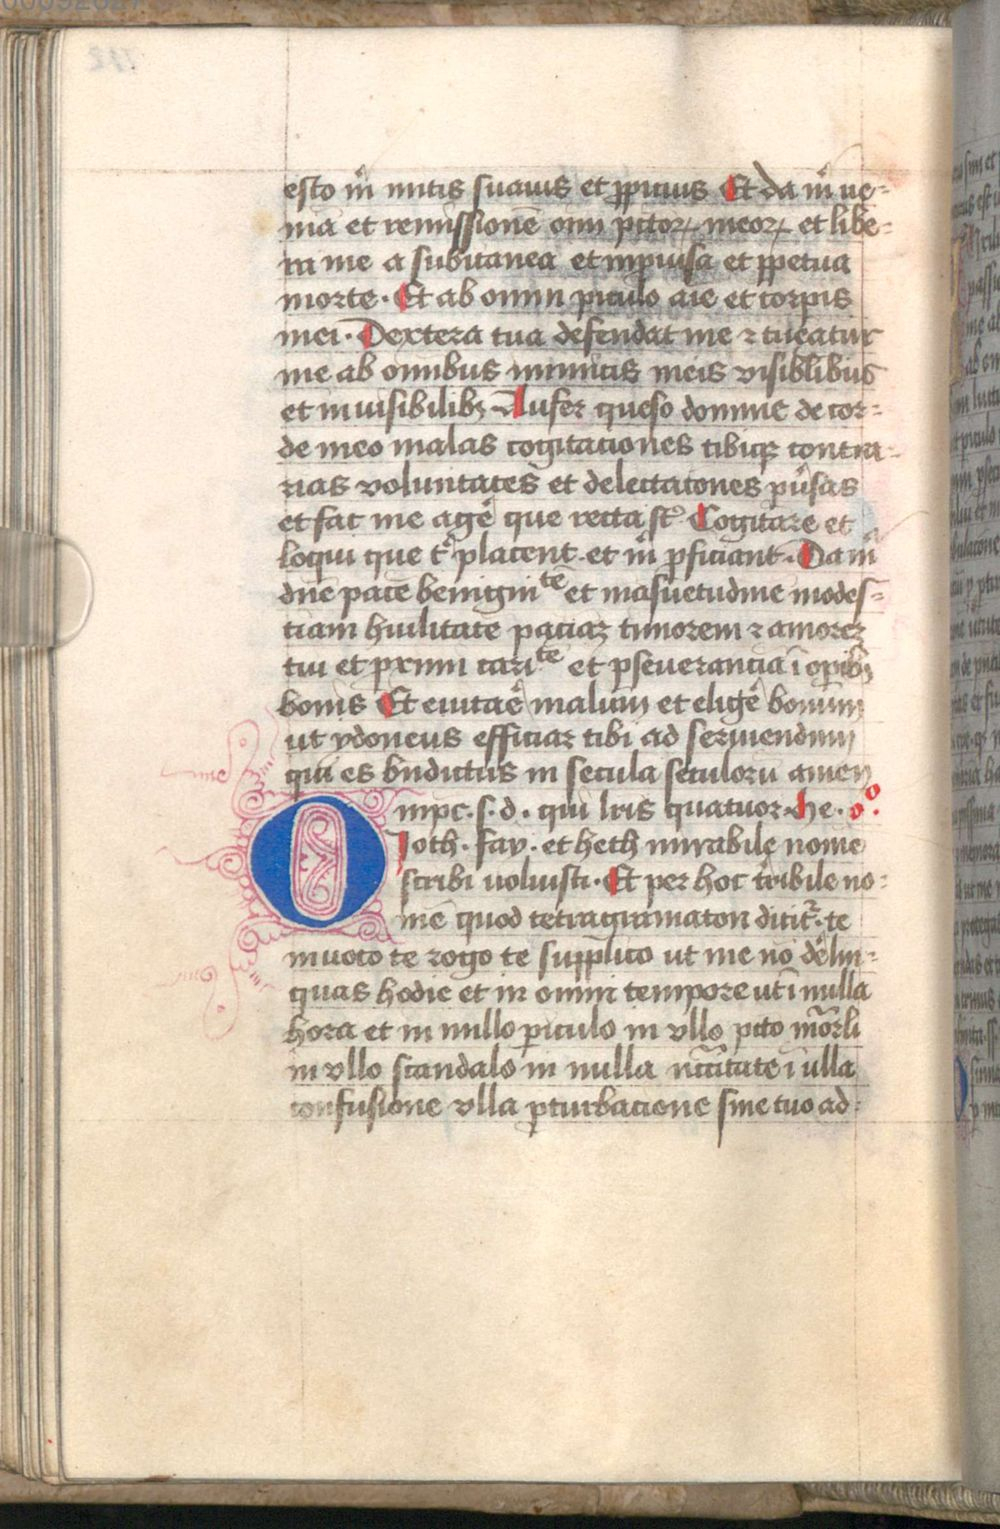 esto m̃ mitis suauis et ꝓpicius Et da m̃ ue-
niā et remissionē om̄i pctoꝝ meoꝝ et libe-
ra me a subitanea et inprouisa et ꝑpetua
morte. Et ab omni ꝑiculo aīe et corꝑis
mei. Dextera tua defendat me ⁊ tueatur
me ab omnibus inimicis meis visiblibus
et inuisibilibꝫ Aufer queso domine de cor-
de meo malas cogitaciones tibiqꝫ contra-
rias voluntates et delectatones
et fac me agē que recta st̄ Cogitare et
loqui que t̃ placent et m̃ ꝓficiant. Da m̃
dn̄e pacē benignitē et māsuetudine modes-
tiam huilitatē timorem ⁊ amorez
tui et pximi caritē et ꝑseuerancia ī oꝑibꝫ
bonis Et euitaē malum et eligē bonum
ut ydoneus efficiaz tibi ad seruiendum
qui es bndictus in secula seculorū amen
Ompc. s. d. qui lr̄is quatuor he. o°.
Joth. fay. et heth mirabile nomē
scribi uoluisti. Et per hoc tribile no-
mē quod tetragramaton dicit̃. te
inuoco te rogo te supplico ut me nō delin-
quas hodie et in omni tempore ut ī nulla
hora et in nullo ꝑiculo in vllo pcto mōrli
in vllo scandalo in nulla nccītate ī ulla
confusione vlla ꝑturbacione sine tuo ad-